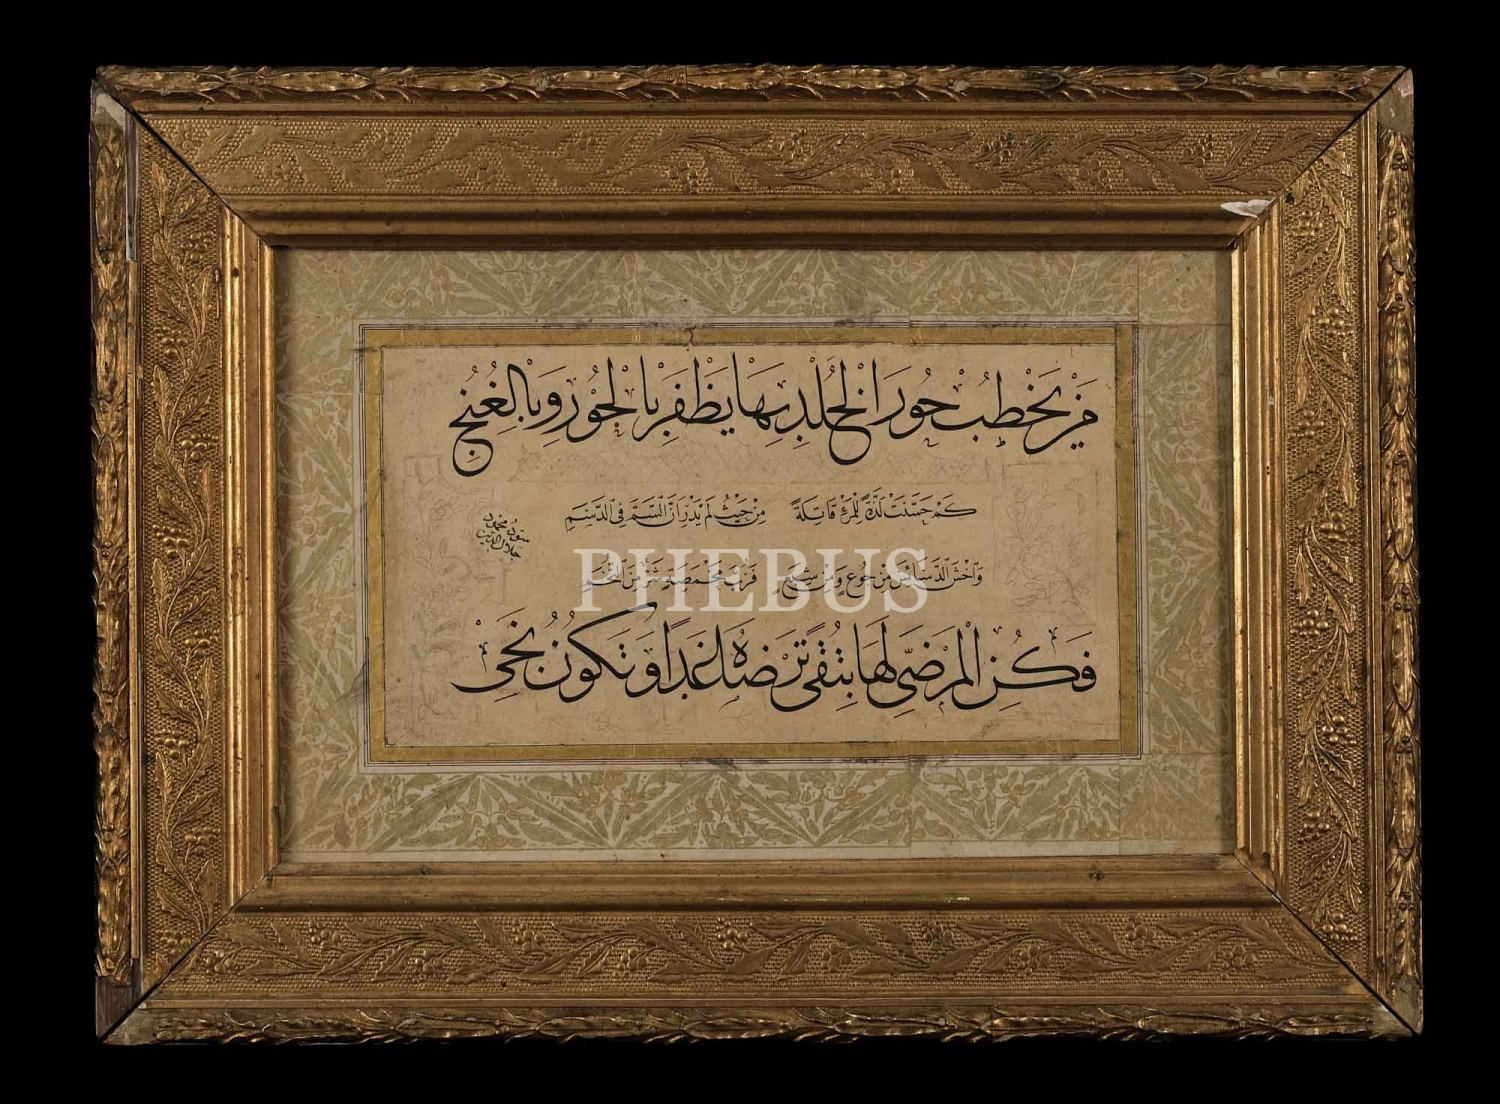 مَنْ يَخْطُبْ حُورَ الْخُلْدِ بِهَا يَظْفَرْ بِالْحُورِ وَبِالْغُنُجِ
كَمْ حَسَّنَتْ لَذَّةً لِلْمَرْءِ قَاتِلَةً مِنْ حَيْثُ لَمْ يَدْرِ اَنَّ السَّمَّ فِي الدَّسَمِ
وَاخْشَ الدَّسَائِسَ مِنْ جُوعٍ وَمِنْ شِبَعٍ فَرُبَّ مَخْمَصَةٍ شَرٌّ مِنَ التُّخَمِ
سوده محمود
جلال الدين
PHEBUS
فَكُنِ الْمَرْضِيَّ لَهَا بِتُقًى تَرْضَاهُ غَدًا وَتَكُونُ نَجِي